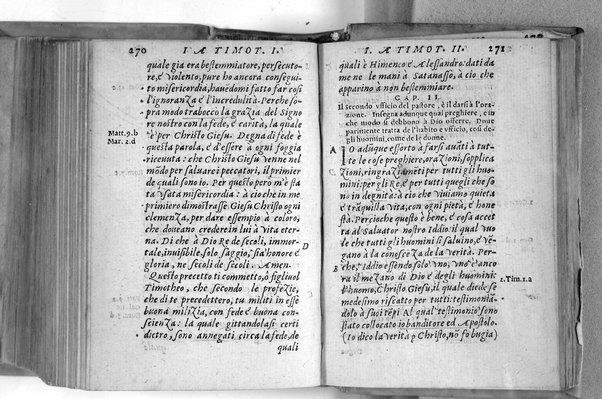 270 I A TIMOT. I.
quale gia era bestemmiatore, persecuto-
re, e violento, pure ho ancora consegui-
to misericordia, havēdomi fatto far cosi
l'ignoranza e l'incredulità. Perche so-
pra modo trabocco la grazia del Signo
re nostro con la fede, e carità, la quale
Matt. 9.b
è per Christo Giesu. Degna di fede è
Mar. 2.d
questa parola, e d'essere a ogni foggia
ricevuta: che Christo Giesu venne nel
mōdo per salvare i peccatori, il primier
de quali sono io. Per questo però m'è sta
ta usata misericordia: à ciò che in me
primiero dimostrasse Giesu Christo ogni
clemenza, per dare essempio à coloro,
che doveano credere in lui à vita eter-
na. Di che à Dio Re de secoli, immor-
D
tale, invisibile, solo saggio, sia honore e
gloria, ne secoli de secoli. Amen.
Questo precetto ti commetto, ò figliuol
Timotheo, che secondo le profezie,
che di te precedettero, tu militi in esse
buona milizia, con fede e buona con-
scienza: la quale gittandolasi certi
dietro, sono annegati circa la fede, de
quali
I. A TIMOT. II. 271
quali è Himeneo e Alessandro: dati da
me ne le mani à Satanasso, à ciò che
apparino a non bestemmiare.
CAP. II.
Il secondo ufficio del pastore, è il darsi à l'ora-
zione. Insegna adunque quai preghiere, e in
che modo si debbono à Dio offerere. Dove
parimente tratta de l'habito e ufficio, cosi de-
gli huomini, come de le donne.
A
IO adūque essorto à farsi avāti à tut-
te le cose preghiere, orazioni, sopplica
zioni, ringraziamēti per tutti gli huo
mini: per gli Re, e per tutti quegli che so
no in degnità: à ciò che viviamo quieta
e trāquilla vita, con ogni pietà, e hone
stà. Percioche questo è bene, e cosa accet
ta al Salvator nostro Iddio: il qual vuo
le che tutti gli huomini si salvino, e vē-
gano à la conoscēza de la verità. Per-
B
che, Iddio essendo solo uno, uno è anco-
ra il mezano di Dio e degli huomini:
1. Tim. 1.2
l'huomo, Christo Giesu, il quale diede se
medesimo riscatto per tutti, testimoniā-
dolo à suoi tēpi. Al qual testimonio sono
stato collocato io banditore ed Apostolo.
(Io dico la verità p Christo, nō fo bugia)